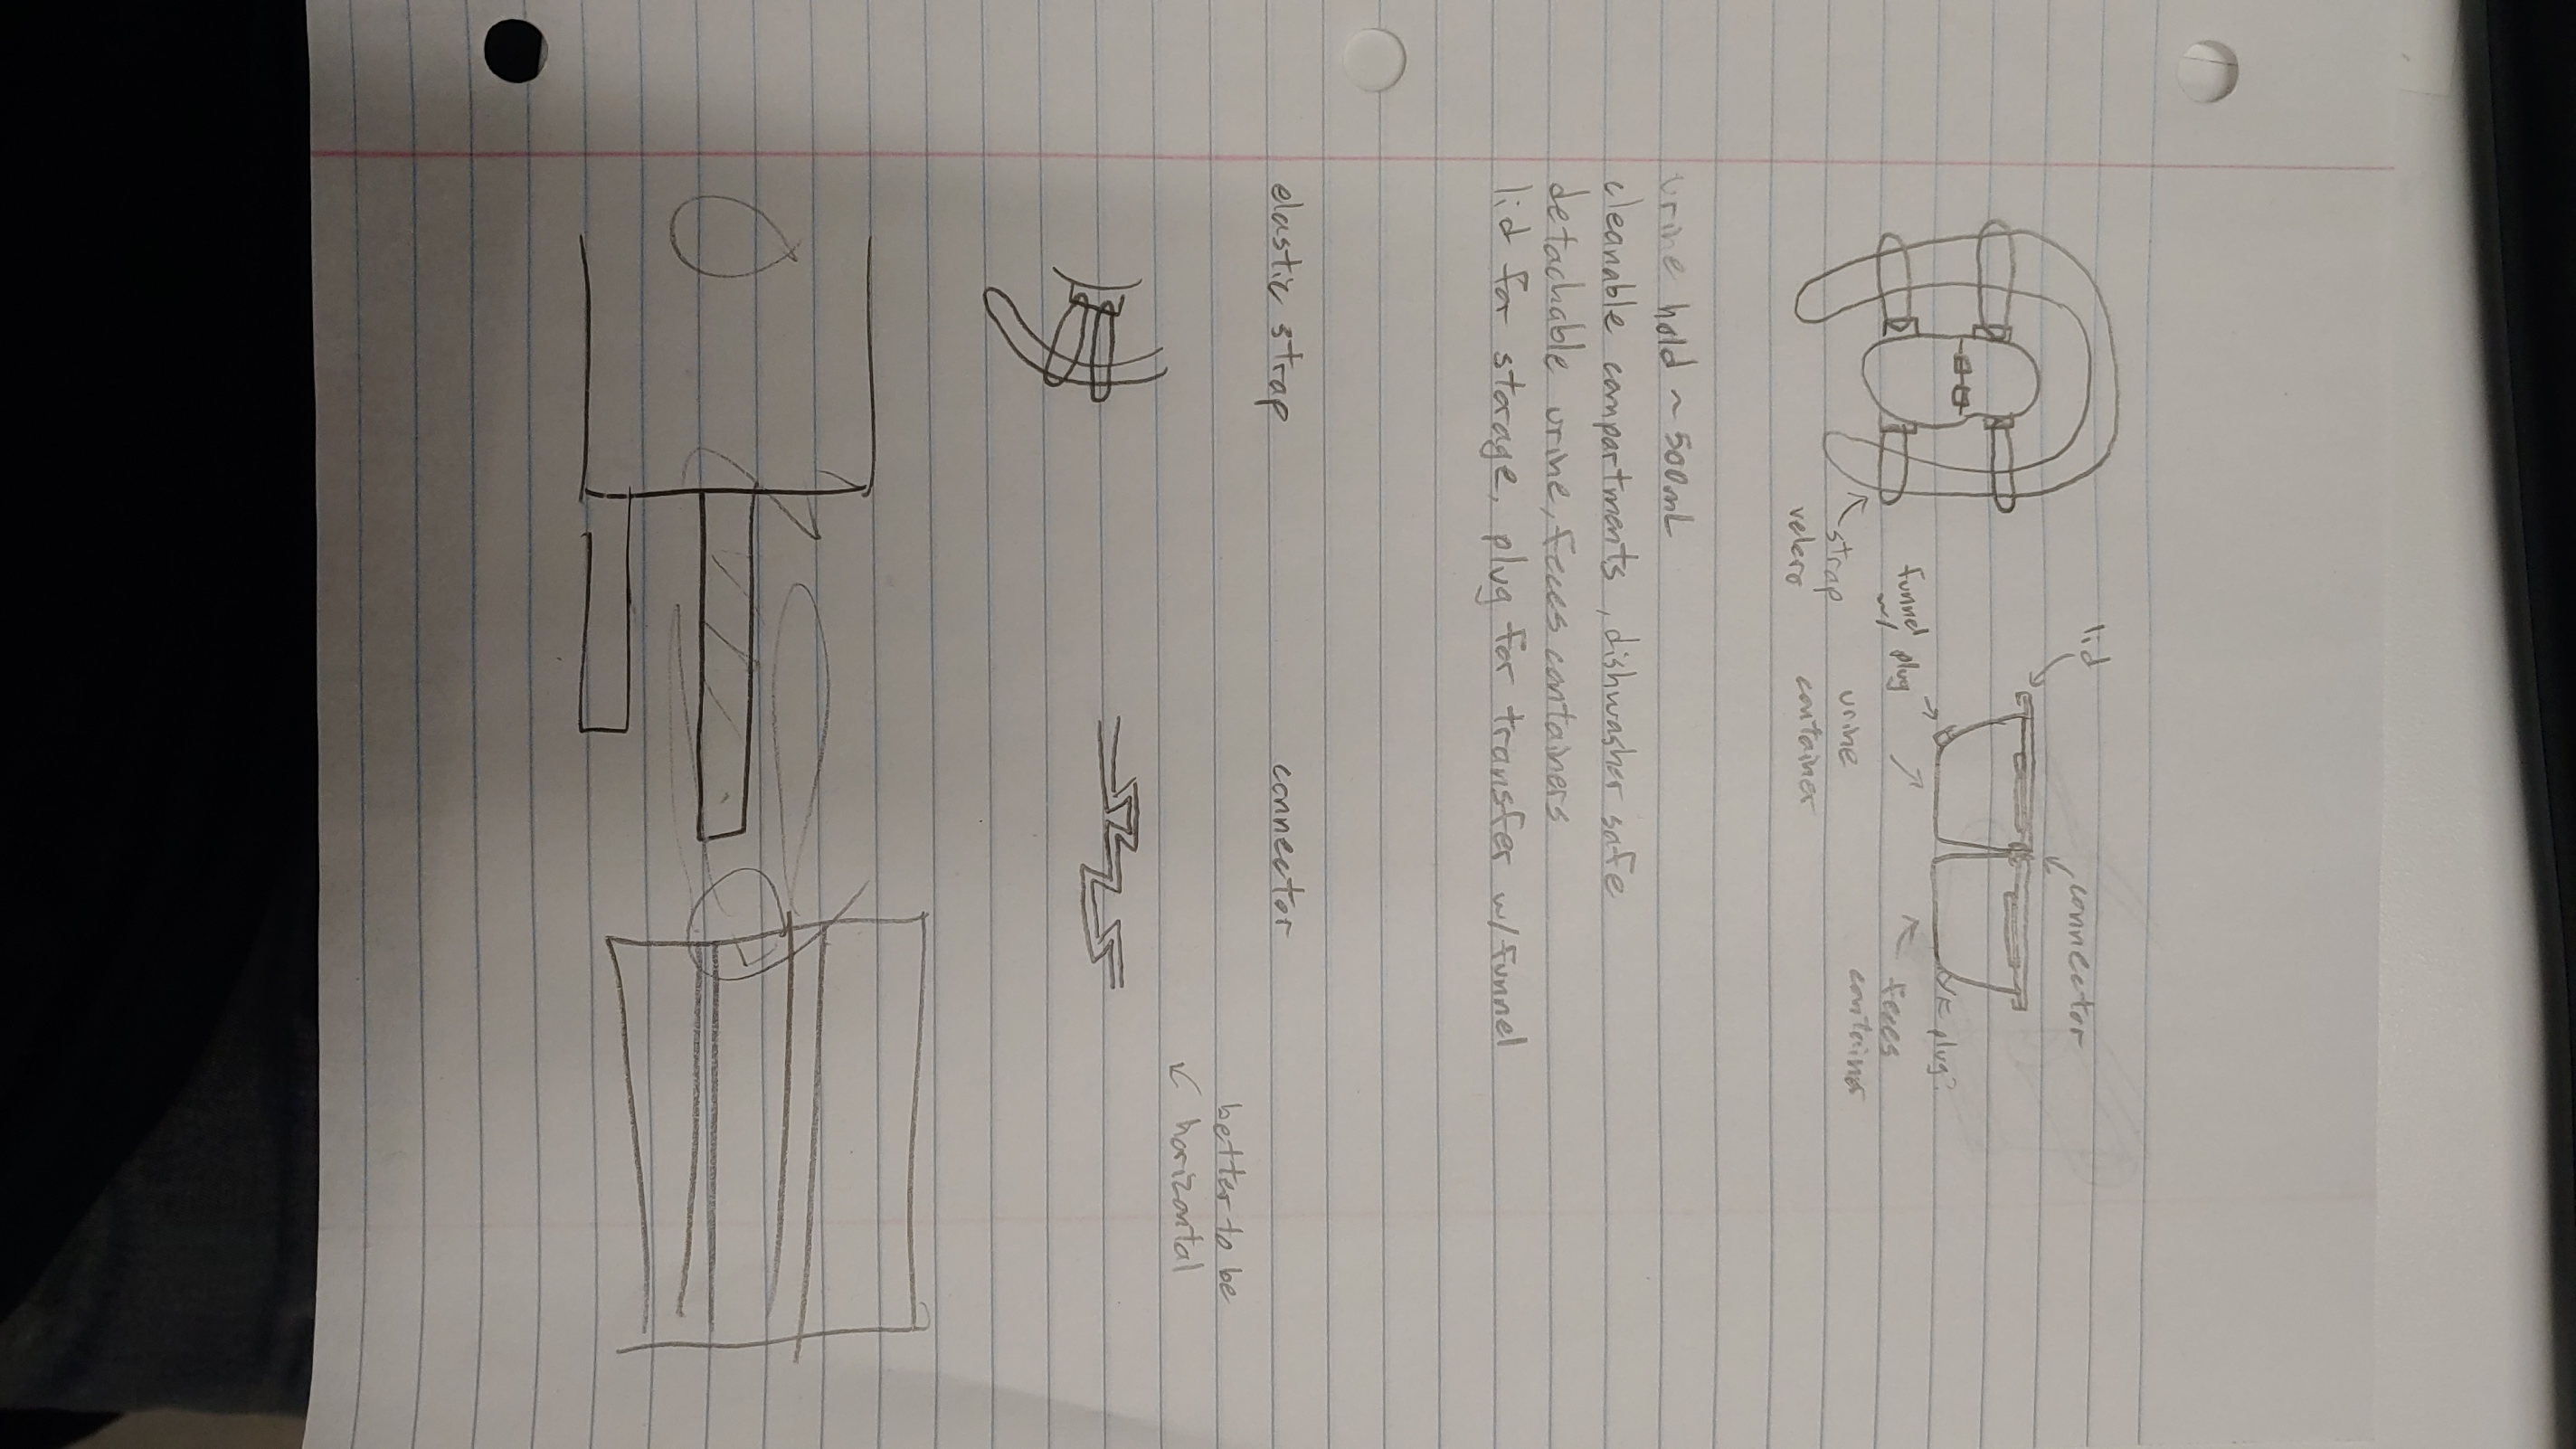 lid
connector
funnel
w/ plug
plug?
strap
velcro
urine
container
feces
container
urine hold ~ 500mL
cleanable compartments, dishwasher safe
detachable urine, feces containers
lid for storage, plug for transfer w/funnel
elastic strap
connector
better to be
horizontal